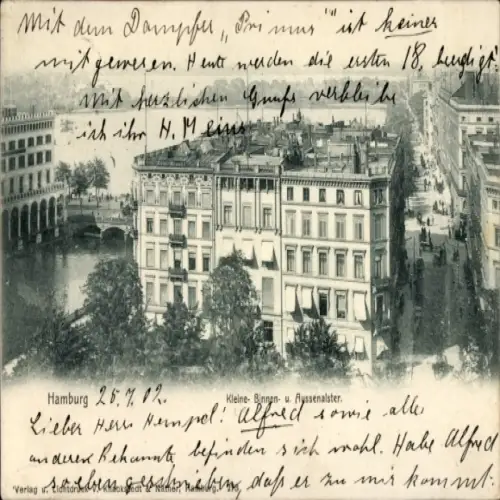 Mit dem Dampfer „Primus" ist keiner
mitgewesen. Heute werden die ersten 18. beerdigt.
Mit herzlichen Gruß verbleibe
ich ihr H. Meins
Hamburg 25.7.02. Kleine- Binnen- u. Aussenalster.
Lieber Herr Hempel! Alfred sowie alle
anderen Bekannte befinden sich wohl. Habe Alfred
soeben geschrieben, daß er zu mir kommt.
Verlag u. Lichtdruck v. Knackstedt & Näther, Hamburg.